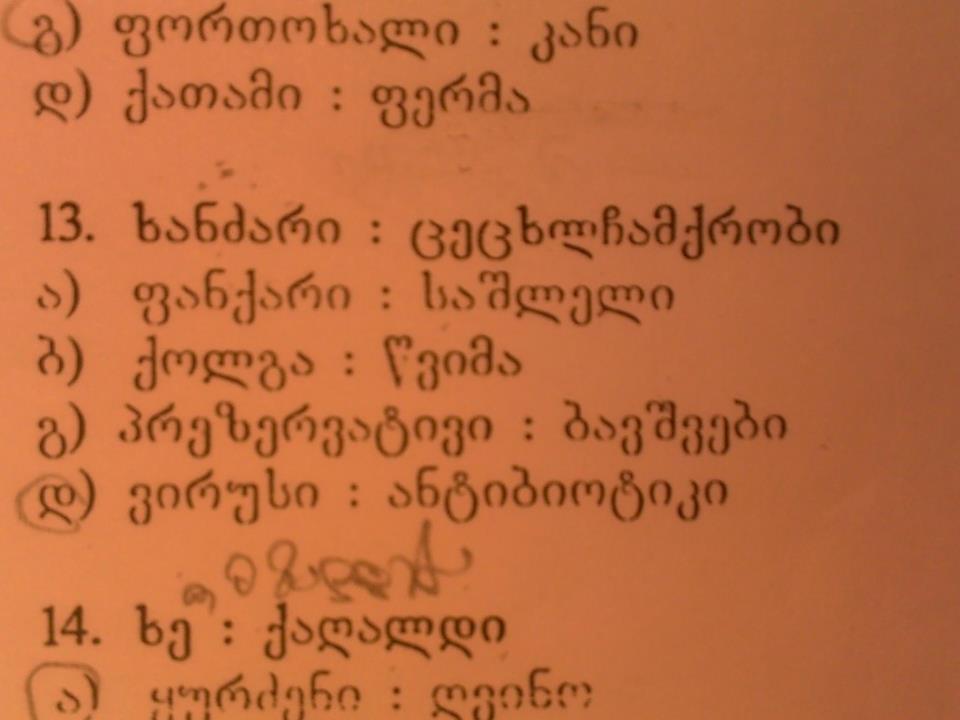 გ) ფორთოხალი : კანი
დ) ქათამი : ფერმა
13. ხანძარი : ცეცხლჩამქრობი
ა) ფანქარი : საშლელი
ბ) ქოლგა : წვიმა
გ) პრეზერვატივი : ბავშვები
დ) ვირუსი : ანტიბიოტიკი
14. ხე : ქაღალდი
ა) ყურძენი : ღვინო